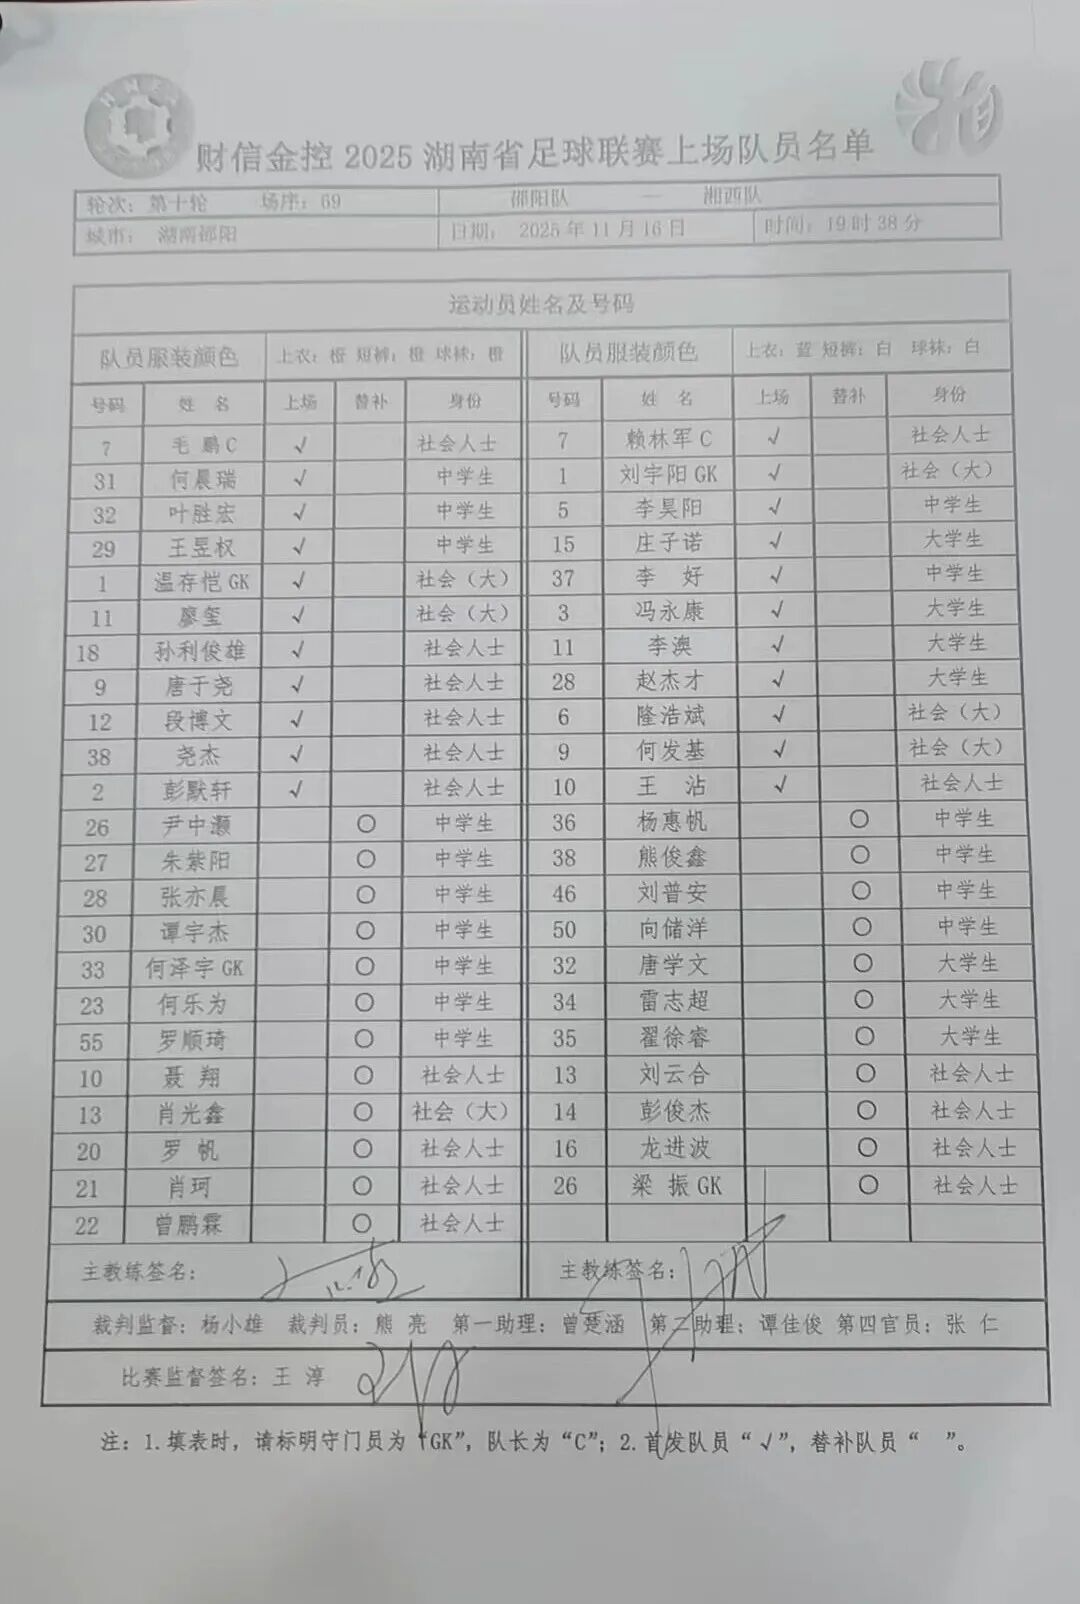 财信金控 2025 湖南省足球联赛上场队员名单
轮次：第十轮 场序：69 邵阳队 — 湘西队
城市： 湖南邵阳 日期： 2025年11月16日 时间：19时38分
运动员姓名及号码
队员服装颜色 上衣：橙 短裤：橙 球袜：橙 队员服装颜色 上衣：蓝 短裤：白 球袜：白
号码 姓 名 上场 替补 身份 号码 姓 名 上场 替补 身份
7 毛 鹏C √ 社会人士 7 赖林军C √ 社会人士
31 何晨瑞 √ 中学生 1 刘宇阳GK √ 社会（大）
32 叶胜宏 √ 中学生 5 李昊阳 √ 中学生
29 王昱权 √ 中学生 15 庄子诺 √ 大学生
1 温存恺GK √ 社会（大） 37 李 好 √ 中学生
11 廖玺 √ 社会（大） 3 冯永康 √ 大学生
18 孙利俊雄 √ 社会人士 11 李澳 √ 大学生
9 唐于尧 √ 社会人士 28 赵杰才 √ 大学生
12 段博文 √ 社会人士 6 隆浩斌 √ 社会（大）
38 尧杰 √ 社会人士 9 何发基 √ 社会（大）
2 彭默轩 √ 社会人士 10 王 沾 √ 社会人士
26 尹中灏 ○ 中学生 36 杨惠帆 ○ 中学生
27 朱紫阳 ○ 中学生 38 熊俊鑫 ○ 中学生
28 张亦晨 ○ 中学生 46 刘普安 ○ 中学生
30 谭宇杰 ○ 中学生 50 向储洋 ○ 中学生
33 何泽宇GK ○ 中学生 32 唐学文 ○ 大学生
23 何乐为 ○ 中学生 34 雷志超 ○ 大学生
55 罗顺琦 ○ 中学生 35 翟徐睿 ○ 大学生
10 聂 翔 ○ 社会人士 13 刘云合 ○ 社会人士
13 肖光鑫 ○ 社会（大） 14 彭俊杰 ○ 社会人士
20 罗 帆 ○ 社会人士 16 龙进波 ○ 社会人士
21 肖珂 ○ 社会人士 26 梁 振GK ○ 社会人士
22 曾鹏霖 ○ 社会人士
主教练签名： 主教练签名：
裁判监督：杨小雄 裁判员：熊 亮 第一助理：曾楚涵 第二助理：谭佳俊 第四官员：张 仁
比赛监督签名：王 淳
注：1.填表时，请标明守门员为“GK”，队长为“C”；2.首发队员“√”，替补队员“ ”。